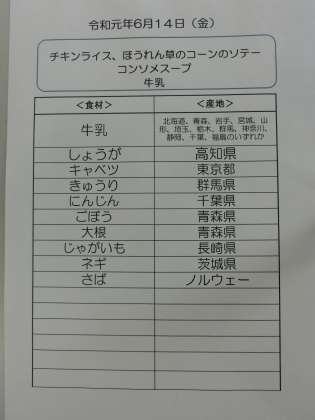 令和元年6月14日（金）
チキンライス、ほうれん草のコーンのソテー
コンソメスープ
牛乳
＜食材＞ ＜産地＞
牛乳 北海道、青森、岩手、宮城、山
形、埼玉、栃木、群馬、神奈川、
静岡、千葉、福島のいずれか
しょうが 高知県
キャベツ 東京都
きゅうり 群馬県
にんじん 千葉県
ごぼう 青森県
大根 青森県
じゃがいも 長崎県
ネギ 茨城県
さば ノルウェー